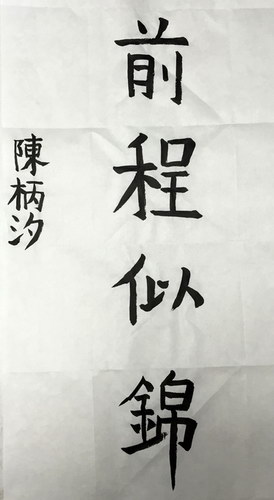 前程似錦
陳柄汐